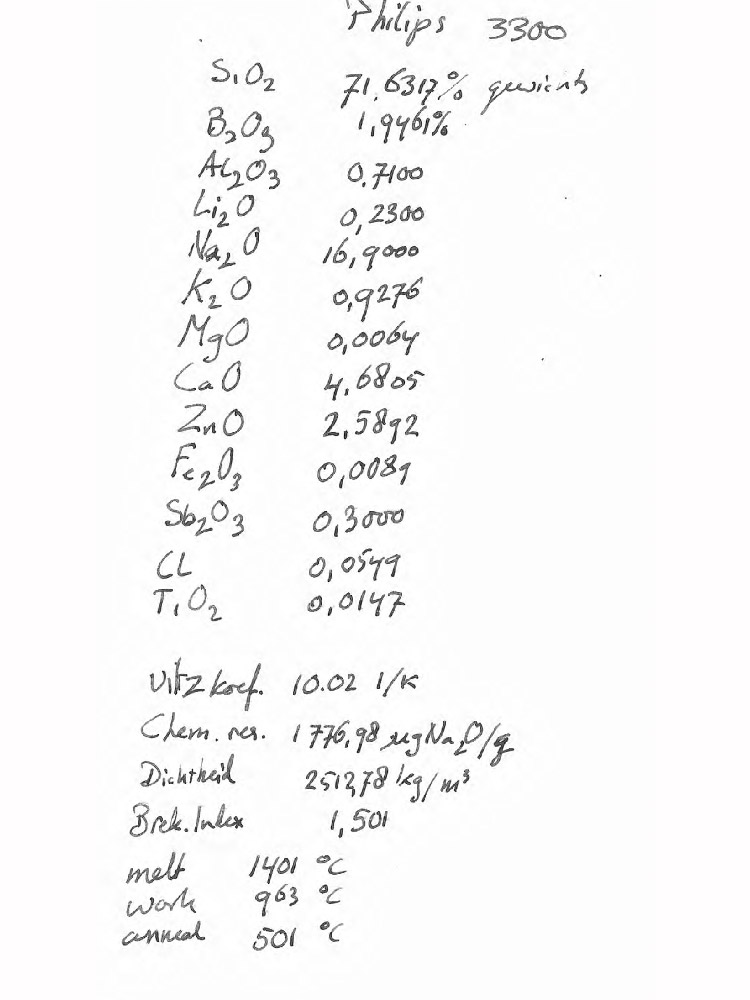 Philips 3300
SiO2 71.6317% gewicht
B2O3 1,9461%
Al2O3 0.7100
Li2O 0,2300
Na2O 16,9000
K2O 0,9276
MgO 0,0064
CaO 4,6805
ZnO 2,5892
Fe2O3 0,0089
Sb2O3 0,3000
CL 0,0549
TiO2 0,0147
Uitz koef. 10.02 1/K
Chem. res. 1776,98 µgNa2O/g
Dichtheid 2512,78 kg/m³
Brek. Index 1,501
melt 1401 °C
work 963 °C
anneal 501 °C